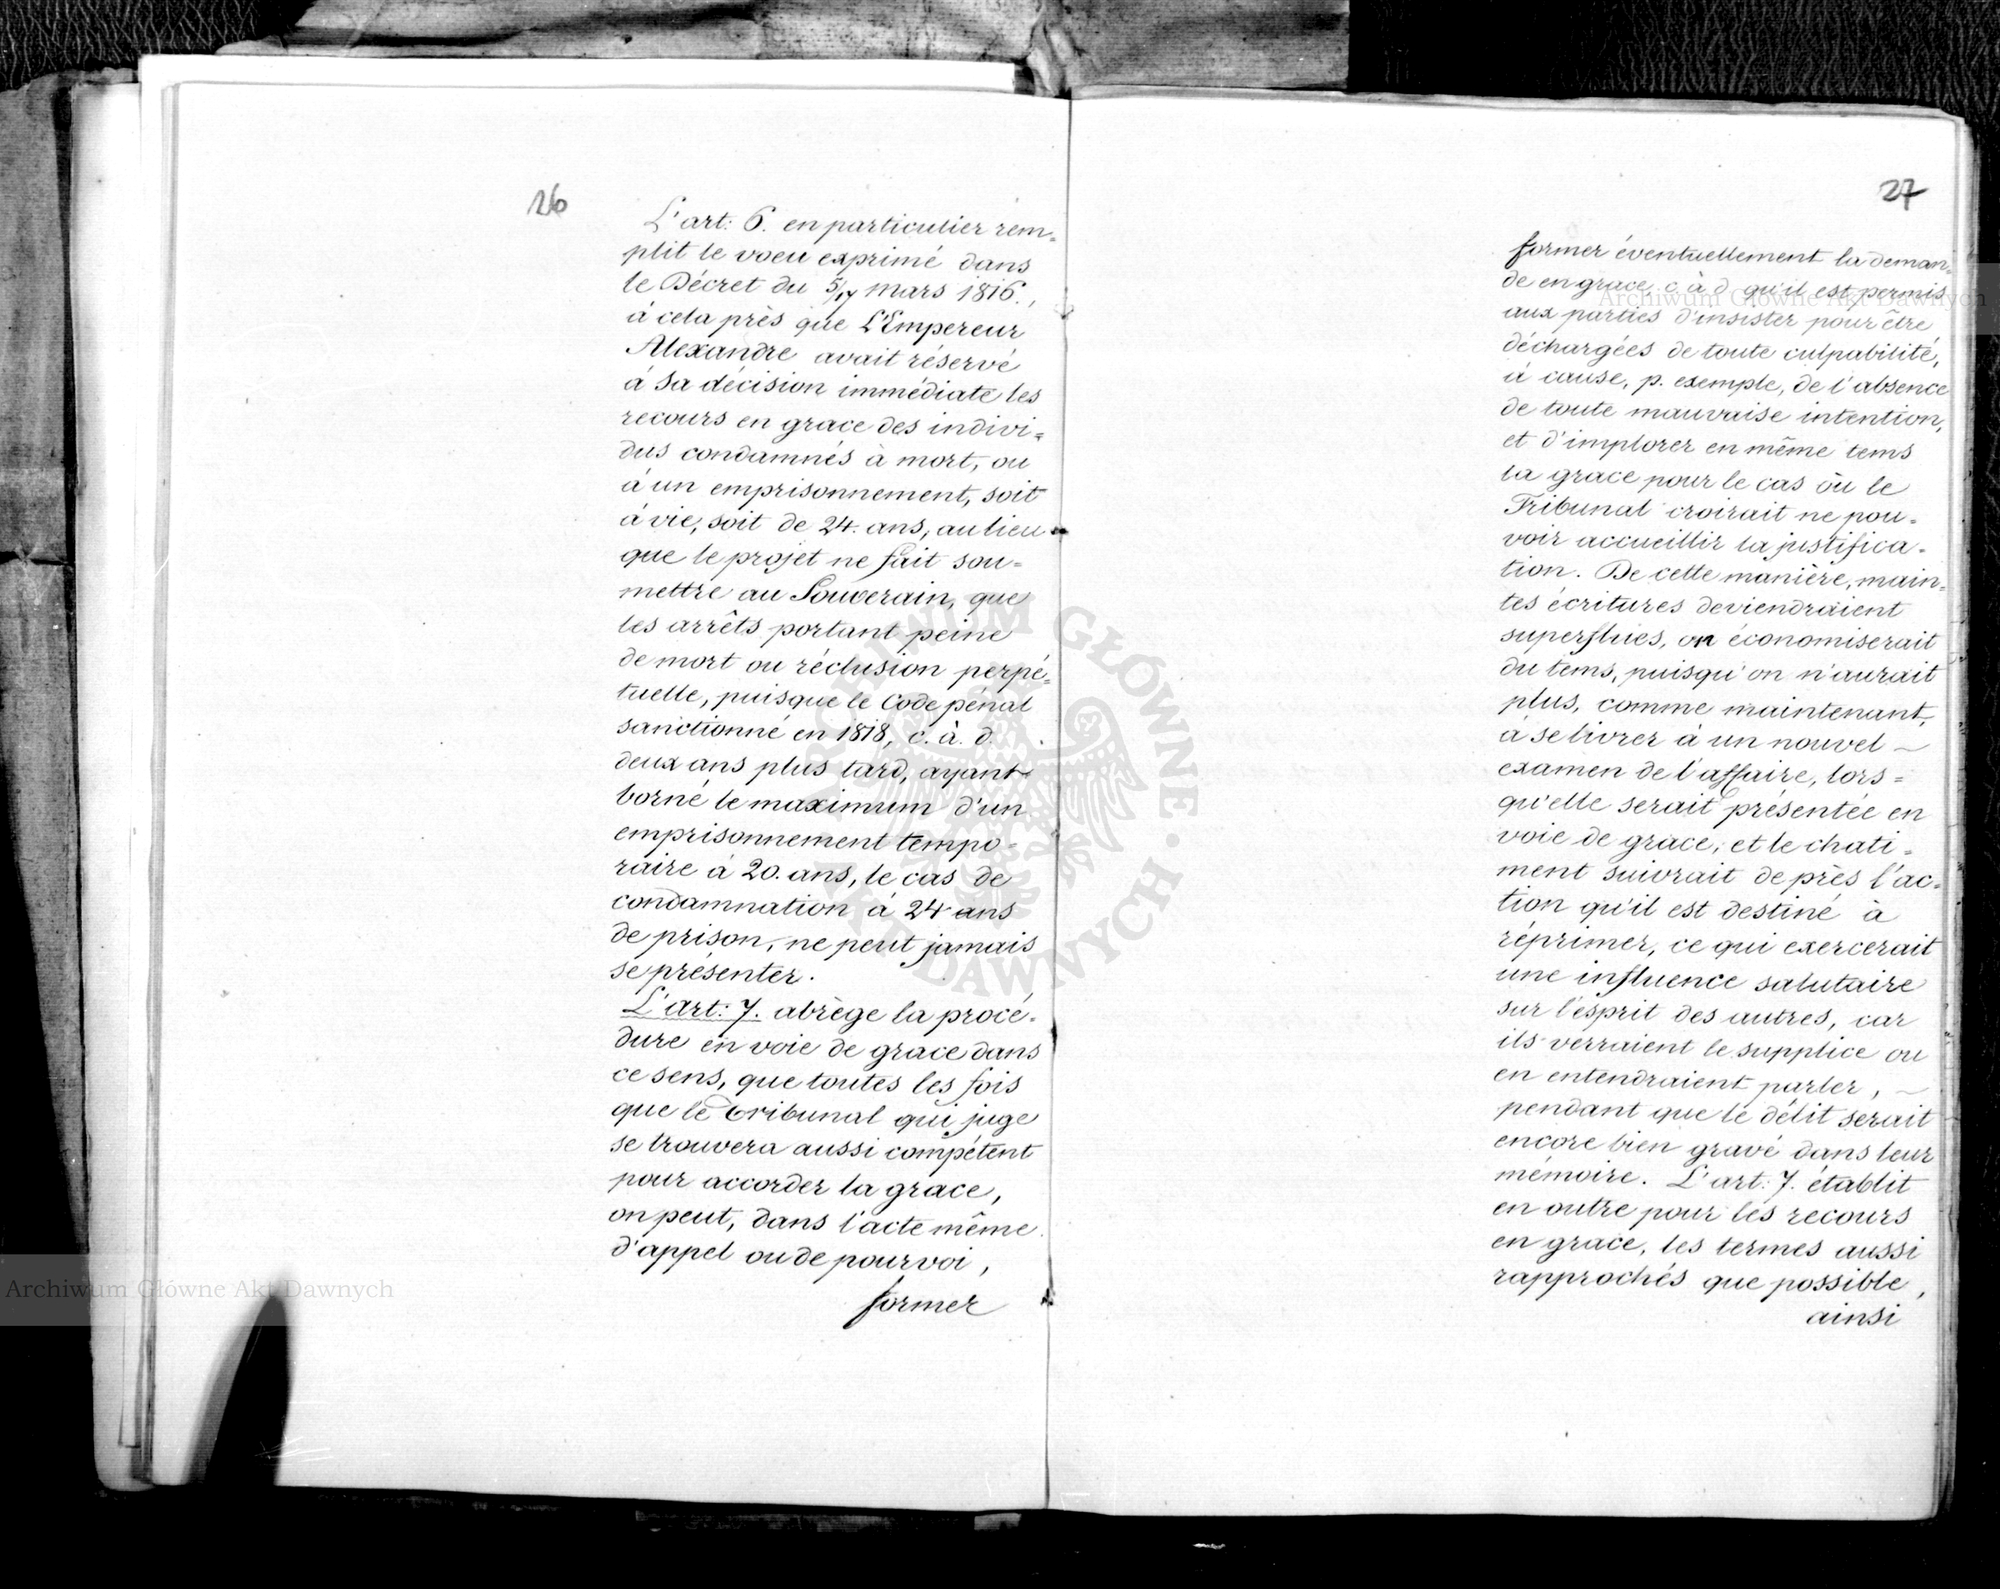 26
L'art: 6. en particulier rem=
plit le voeu exprimé dans
le Décret du 5/17 mars 1816.,
à cela près que L'Empereur
Alexandre avait réservé
à sa décision immédiate les
recours en grace des indivi=
dus condamnés à mort, ou
à un emprisonnement, soit
à vie, soit de 24. ans, au lieu
que le projet ne fait sou=
mettre au Souverain, que
les arrêts portant peine
de mort ou réclusion perpé=
tuelle, puisque le Code pénal
sanctionné en 1818, c. à. d.
deux ans plus tard, ayant
borné le maximum d'un
emprisonnement tempo=
raire à 20. ans, le cas de
condamnation à 24 ans
de prison, ne peut jamais
se présenter.
L'art: 7. abrège la procé=
dure en voie de grace dans
ce sens, que toutes les fois
que le Tribunal qui juge
se trouvera aussi compétent
pour accorder la grace,
on peut, dans l'acte même
d'appel ou de pourvoi,
former
27
former éventuellement la deman=
de en grace, c. à d. qu'il est permis
aux parties d'insister pour être
déchargées de toute culpabilité,
à cause, p. exemple, de l'absence
de toute mauvaise intention,
et d'implorer en même tems
la grace pour le cas où le
Tribunal croirait ne pou=
voir accueillir la justifica=
tion. De cette manière, main=
tes écritures deviendraient
superflues, on économiserait
du tems, puisqu'on n'aurait
plus, comme maintenant,
à se livrer à un nouvel
examen de l'affaire, lors=
qu'elle serait présentée en
voie de grace; et le chati=
ment suivrait de près l'ac=
tion qu'il est destiné à
réprimer, ce qui exercerait
une influence salutaire
sur l'esprit des autres, car
ils verraient le supplice ou
en entendraient parler,
pendant que le délit serait
encore bien gravé dans leur
mémoire. L'art: 7. établit
en outre pour les recours
en grace, les termes aussi
rapprochés que possible,
ainsi
Archiwum Główne Akt Dawnych
Archiwum Główne Akt Dawnych
ARCHIWUM GŁÓWNE AKT DAWNYCH